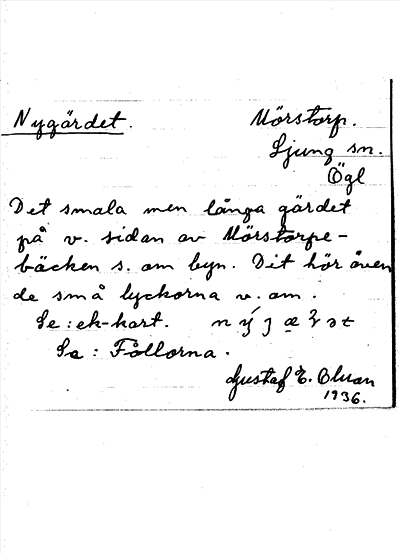 Nygärdet.
Mörstorp.
Ljung sn.
Ögl
Det smala men långa gärdet
på v. sidan av Mörstorpe-
bäcken s. om byn. Dit hör även
de små lyckorna v. om.
Se: ek-kart.
Se: Fållorna.
Gustaf E. Olsson
1936.